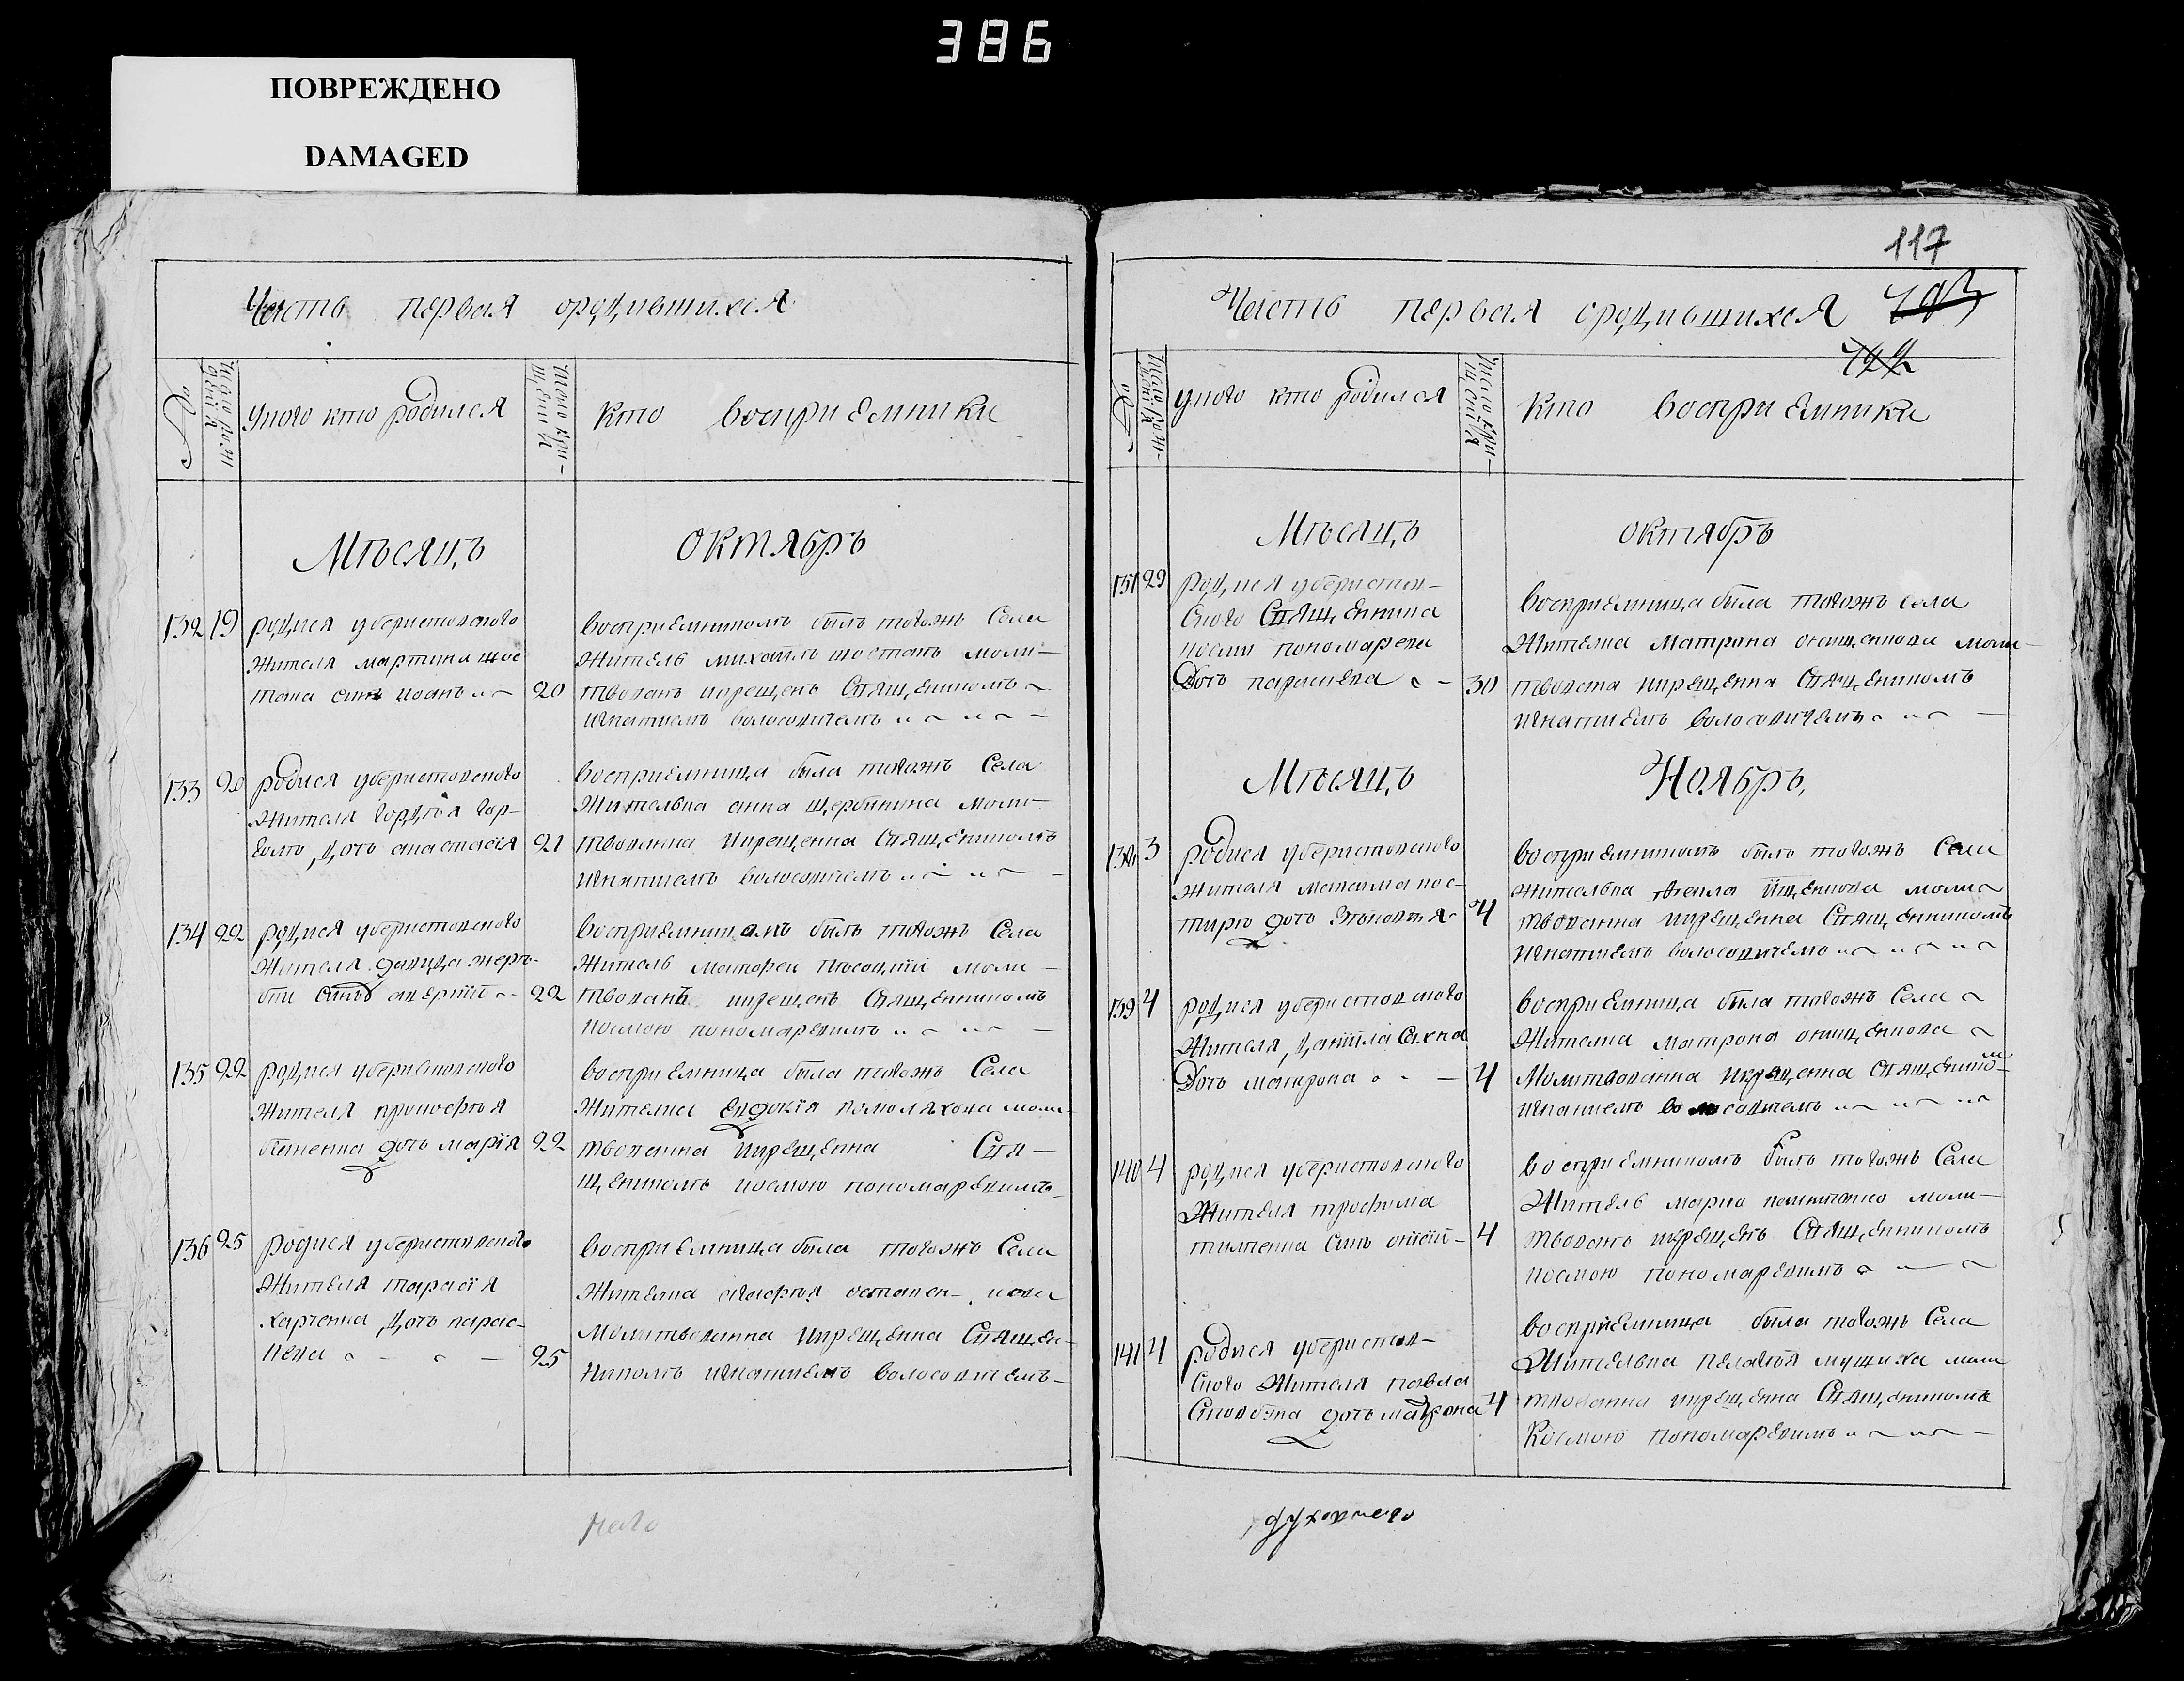 386
ПОВРЕЖДЕНО
DAMAGED
Часть первая ородившихся
№
число рож
дения
Укого кто родился
число кре-
щения
кто восприемники
Мѣсяцъ октябрь
132 19 родися уберистовского
Жителя мартина шос
така синъ иоанъ 20
восприемникомъ былъ тогожъ Села
Житель михаилъ шостакъ моли-
твованъ икрещенъ Священикомъ
игнатиемъ волосовичемъ
133 20 родися уберистовского
Жителя гордѣя гор-
дочь анастасія 21
восприемница была тогожъ Села
Жителька анна щербинина моли-
твованна икрещенна Священикомъ
игнатиемъ волосовичемъ
134 22 родися уберистовского
Жителя давида
синъ 22
восприемникомъ былъ тогожъ Села
Житель матфей моли-
твованъ икрещенъ Священникомъ
космою пономаревимъ
135 22 родися уберистовского
Жителя прокофія
дочь марія 22
восприемница была тогожъ Села
Жителка Евдокія моли-
твованна икрещенна Свя-
щеникомъ космою пономаревимъ
136 25 родися уберистовского
Жителя тарасія
харченка дочь парас-
кева 25
восприемница была тогожъ Села
Жителка
Молитвованна икрещенна Священ-
никомъ игнатиемъ волосовичемъ
117
Часть первая ородившихся
№
число рож-
дения
укого кто родился
число кре-
щения
кто восприемники
Мѣсяцъ октябрь
29 родися уберистов-
ского Священника
косми пономарева
Дочь параскева 30
восприемница была тогожъ села
Жителка Матрона онищенкова моли-
твована икрещенна Священикомъ
игнатиемъ волосовичемъ
Мѣсяцъ Ноябрь,
138 3 родися уберистовского
жителя максима кос-
тирю дочь 4
восприемникомъ былъ тогожъ Села
жителька моли
твованна икрещенна Священникомъ
игнатиемъ волосовичемъ
139 4 родися уберистовского
Жителя, даниила Сахна
Дочь матрона 4
восприемница была тогожъ Села
Жителка матрона онищенкова
Молитвованна икрещенна Священико-
м
игнатиемъ волосовичемъ
140 4 родися уберистовского
Жителя трофима
синъ 4
восприемникомъ былъ тогожъ Села
Житель марко моли-
твованъ икрещенъ Священникомъ
космою пономаревимъ
141 4 родися уберистов-
ского Жителя павла
дочь матрона 4
восприемница была тогожъ Села
Жителька пелагія мущиха моли
твованна икрещенна Священикомъ
Космою пономаревимъ
духовного